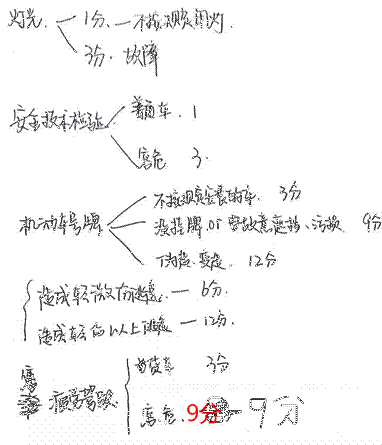 灯光 — 1分 — 不按规定用灯
3分 故障
安全技术检验
普通车 1
客危 3
机动车号牌
不按规定安装的车 3分
没挂牌 or 故意遮挡、污损 9分
伪造 变造 12分
造成轻微伤逃逸 — 6分
造成轻伤以上逃逸 — 12分
疲劳驾驶
货车 3分
客危 9分 9分